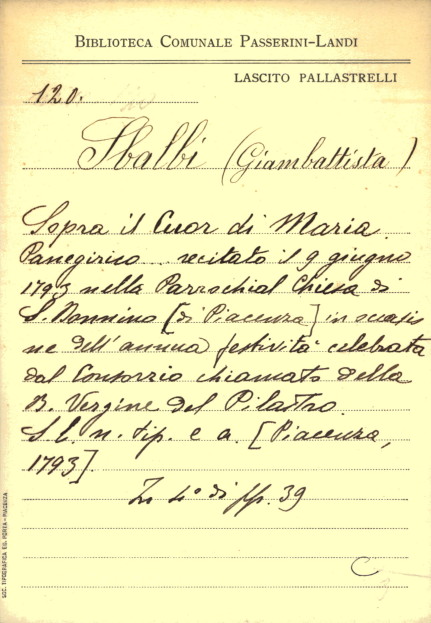 BIBLIOTECA COMUNALE PASSERINI-LANDI
LASCITO PALLASTRELLI
120.
Sbalbi (Giambattista)
Sopra il Cuor di Maria.
Panegirico... recitato il 9 giugno
1793 nella Parrochial Chiesa di
S. Donnino [di Piacenza] in occasio
ne dell'annua festività celebrata
dal Consorzio chiamato della
B. Vergine del Pilastro.
S. l. n. tip. e a. [Piacenza,
1793].
In 4° di pp. 39
C
SOC. TIPOGRAFICA ED. PORTA - PIACENZA